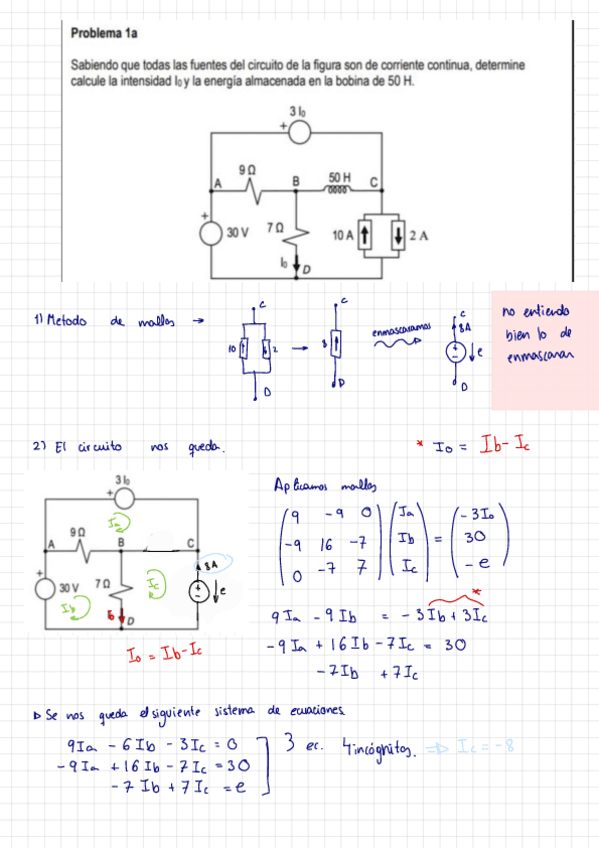 Problema 1a
Sabiendo que todas las fuentes del circuito de la figura son de corriente continua, determine
calcule la intensidad I₀ y la energía almacenada en la bobina de 50 H.
3 I₀
+
9 Ω
A
B
50 H
C
+
30 V
7 Ω
10 A
2 A
I₀
D
1) Metodo de mallas →
C
10
2
D
→
C
8
D
enmascaramos
C
8A
+
-
e
D
no entiendo
bien lo de
enmascarar
2) El circuito nos queda.
* Io = Ib - Ic
3 I₀
+
Ia
9 Ω
A
B
C
8A
+
30 V
7 Ω
Ib
Ic
+
-
e
Io
D
Io = Ib - Ic
Aplicamos mallas
9 -9 0 Ia -3Io
-9 16 -7 Ib = 30
0 -7 7 Ic -e
*
9Ia - 9Ib = -3Ib + 3Ic
-9Ia + 16Ib - 7Ic = 30
-7Ib + 7Ic
▷ Se nos queda el siguiente sistema de ecuaciones.
9Ia - 6Ib - 3Ic = 0
-9Ia + 16Ib - 7Ic = 30
-7Ib + 7Ic = e
3 ec. 4 incógnitas. ⇒ Ic = -8